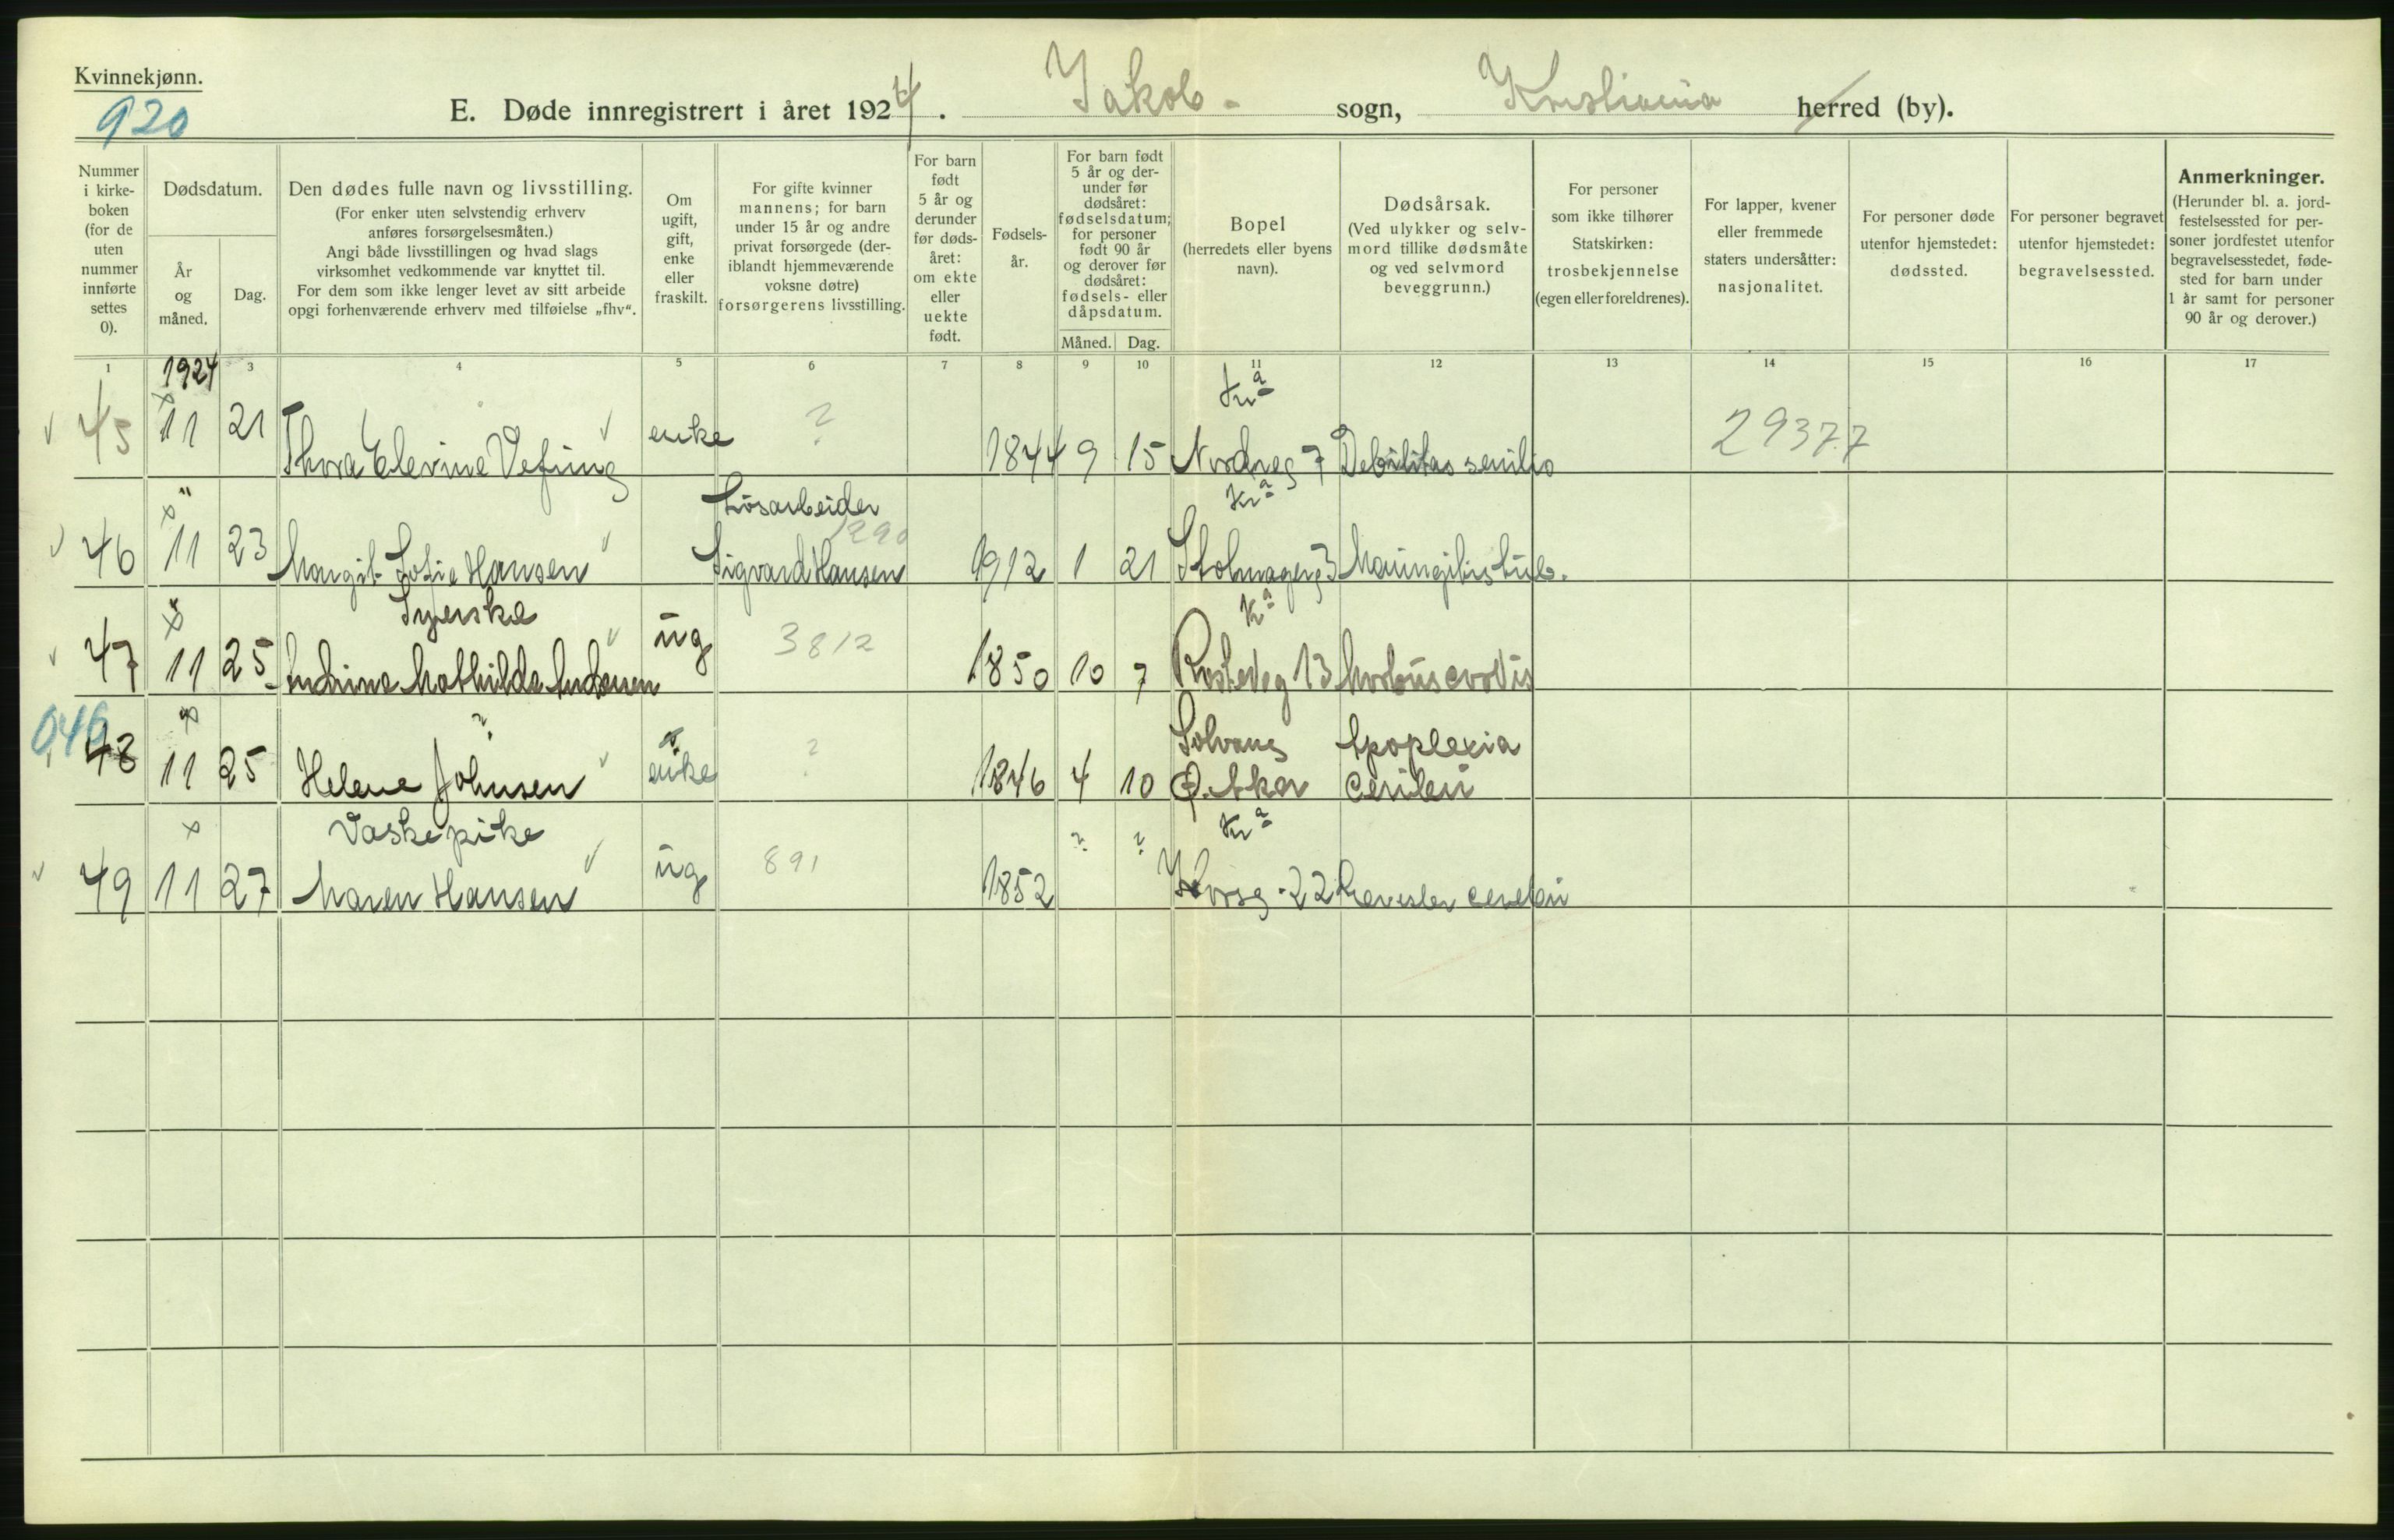 Kvinnekjønn.
920
E. Døde innregistrert i året 1924. Jakob - sogn, Kristiania herred (by).
Nummer i kirke-boken (for de uten nummer innførte settes 0).
Dødsdatum.
År og måned.
Dag.
Den dødes fulle navn og livsstilling.
(For enker uten selvstendig erhverv anføres forsørgelsesmåten.)
Angi både livsstillingen og hvad slags virksomhet vedkommende var knyttet til.
For dem som ikke lenger levet av sitt arbeide opgi forhenværende erhverv med tilføielse „fhv“.
Om ugift, gift, enke eller fraskilt.
For gifte kvinner mannens; for barn under 15 år og andre privat forsørgede (deriblandt hjemmeværende voksne døtre) forsørgerens livsstilling.
For barn født 5 år og derunder før dødsåret: om ekte eller uekte født.
Fødsels-år.
For barn født 5 år og derunder før dødsåret: fødselsdatum; for personer født 90 år og derover før dødsåret: fødsels- eller dåpsdatum.
Måned. Dag.
Bopel
(herredets eller byens navn).
Dødsårsak.
(Ved ulykker og selvmord tillike dødsmåte og ved selvmord beveggrunn.)
For personer som ikke tilhører Statskirken: trosbekjennelse (egen eller foreldrenes).
For lapper, kvener eller fremmede staters undersåtter: nasjonalitet.
For personer døde utenfor hjemstedet: dødssted.
For personer begravet utenfor hjemstedet: begravelsessted.
Anmerkninger.
(Herunder bl. a. jordfestelsessted for personer jordfestet utenfor begravelsesstedet, fødested for barn under 1 år samt for personer 90 år og derover.)
1 3 4 5 6 7 8 9 10 11 12 13 14 15 16 17
1924
Kra
45 11 21 Thora Elevine Vefring enke ? 1844 9 15 Nordreg 7 Debilitas senilis 29377
" Løsarbeider 1290 Kra
46 11 23 Margit Sofie Hansen Sigvard Hansen 1912 1 21 Meningitis tub.
" Syerske Kra
47 11 25 Andrine Mathilde Andersen ug 3812 1850 10 7 13 Morbus cordis
046 ? Solvang Apoplexia
48 11 25 Helene Johnsen enke ? 1846 4 10 Ø. Aker cerebri
Vaskepike ? ? Kra
49 11 27 Maren Hansen ug 891 1852 Korsg. 22 cerebri